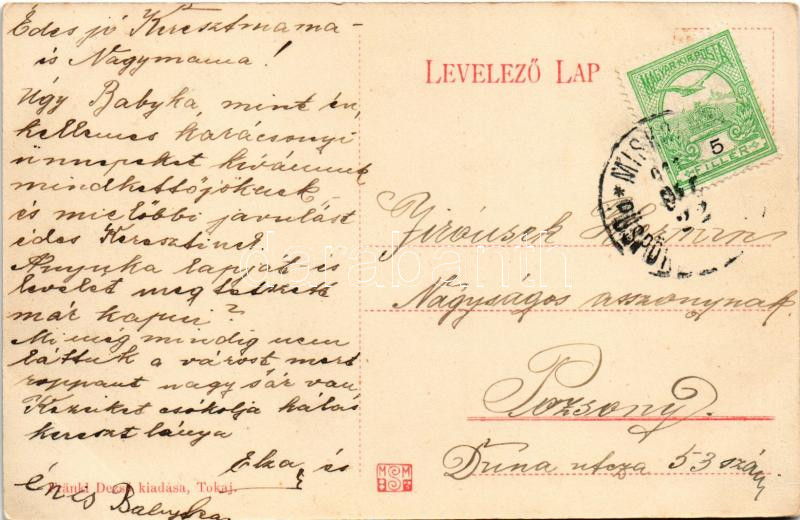 Édes jó Keresztmama
és Nagymama!
Úgy Babyka mint én,
kellemes karácsonyi
ünnepeket kívánunk
mindkettőjöknek
és mielőbbi javulást
édes Keresztinek.
Anyuka lapját és
levelét meg tetszett
már kapni?
Mi még mindig nem
láttuk a várost mert
roppant nagy sár van
Kezeiket csókolja hálás
kereszt lánya
Elza és
én is Babyka
Fränkl Dezső kiadása, Tokaj.
LEVELEZŐ LAP
MAGYAR KIR. POSTA
5
FILLÉR
MISK
PÜSPÖK
22
Nagyságos asszonynak
Pozsony.
Duna utcza 53 szám
MSM
darabanth